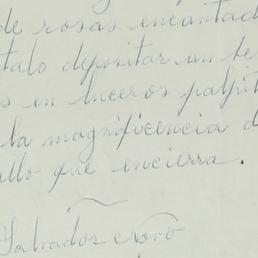 de rosas encantad
talo depositar un be
s en luceros palpit
la magnificencia d
allo que encierra.
Salvador Novo